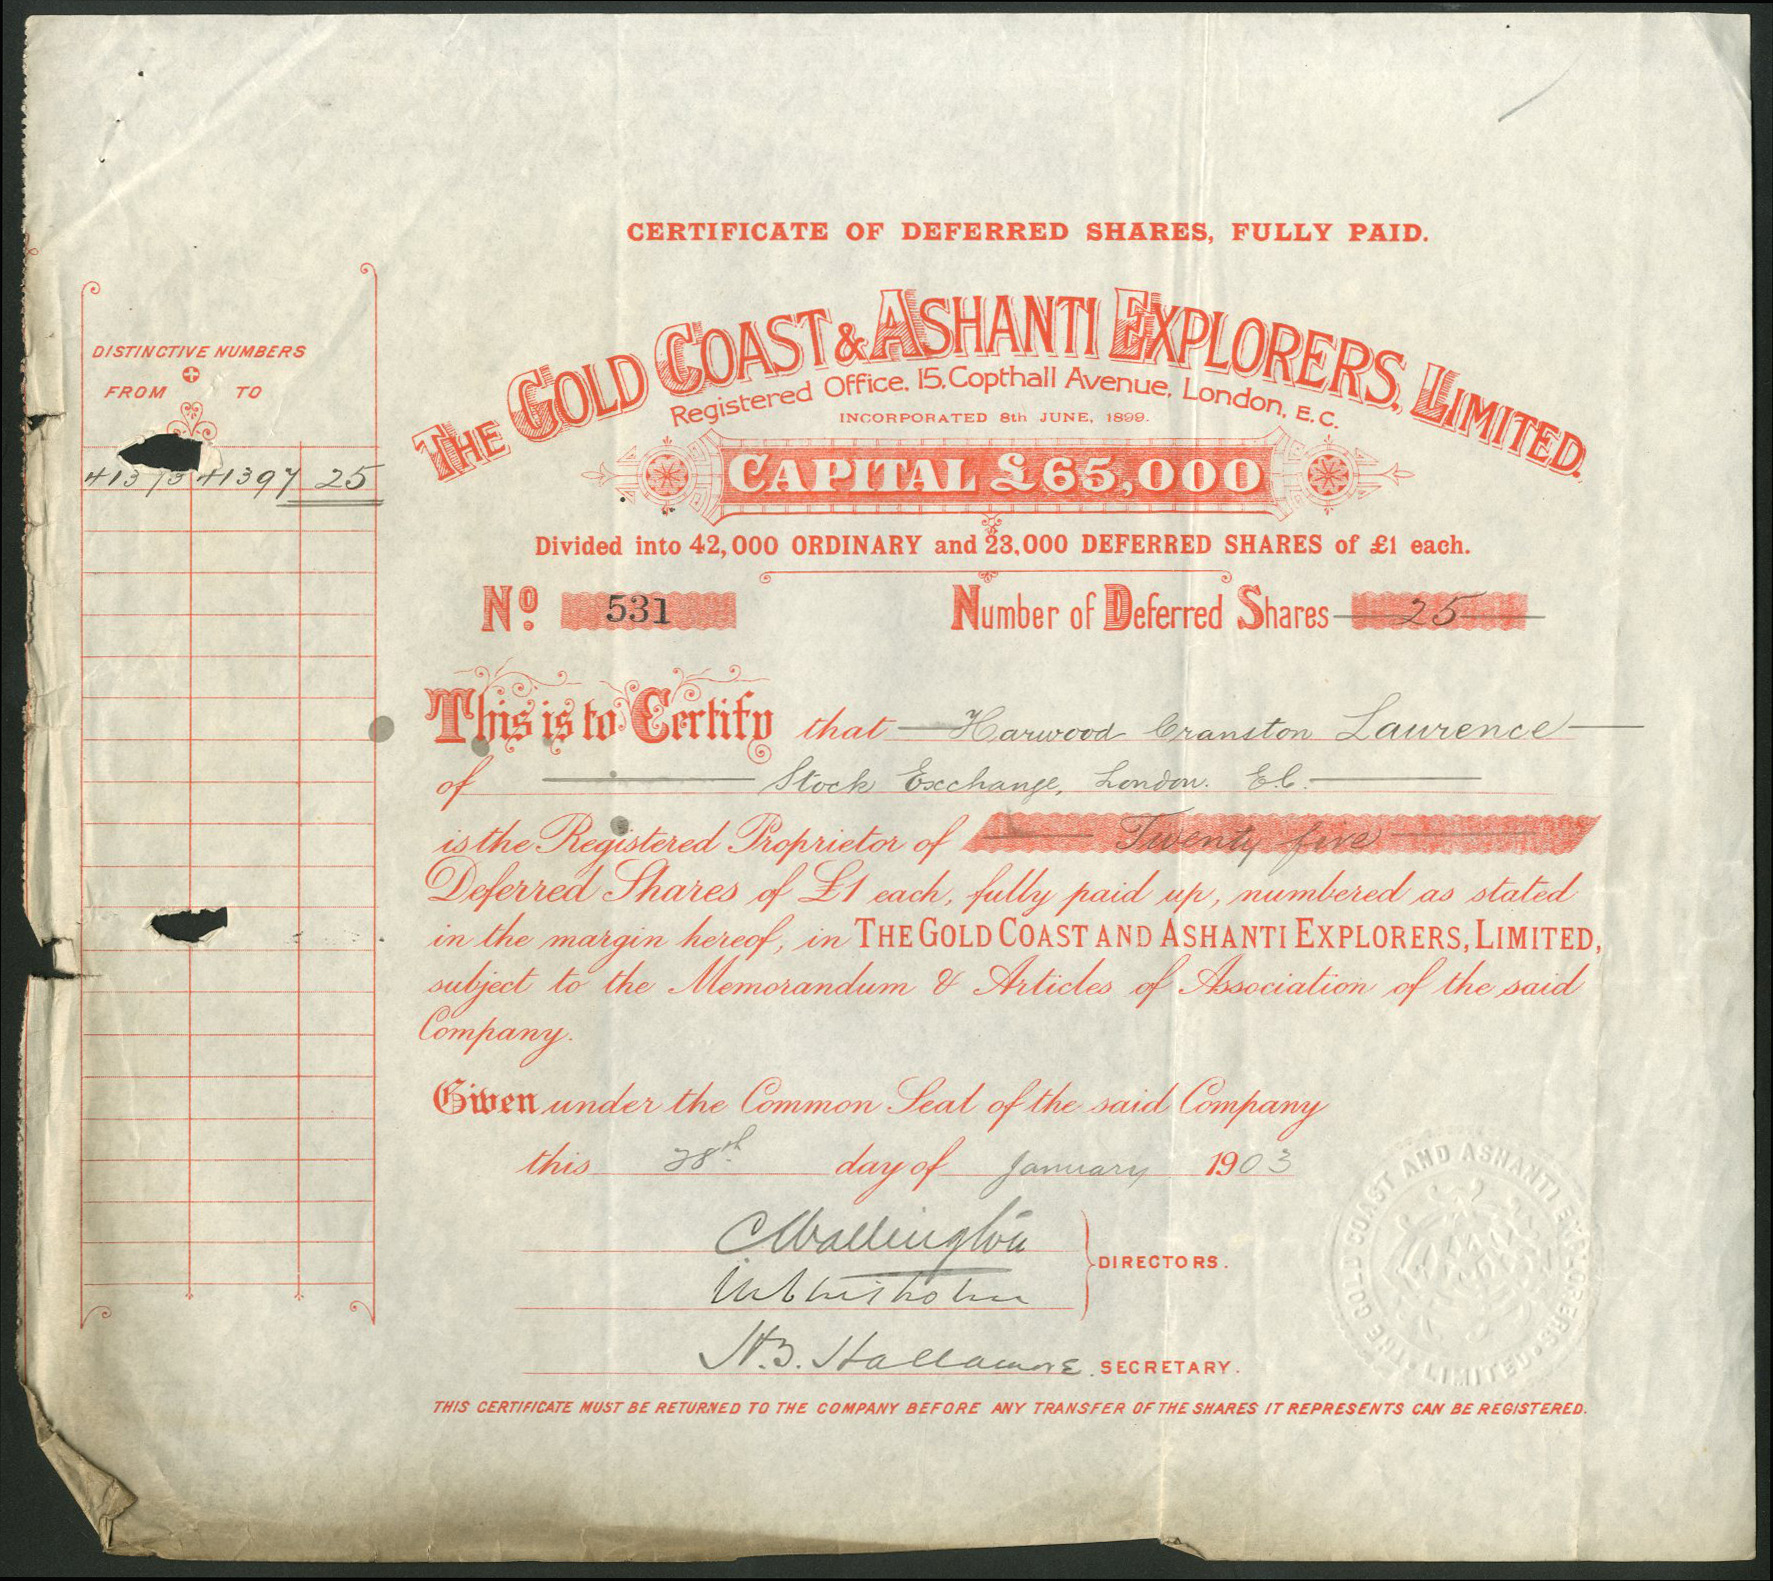 CERTIFICATE OF DEFERRED SHARES, FULLY PAID.
THE GOLD COAST & ASHANTI EXPLORERS, LIMITED.
Registered Office, 15, Copthall Avenue, London, E.C.
INCORPORATED 8th JUNE, 1899.
CAPITAL £65,000
Divided into 42,000 ORDINARY and 23,000 DEFERRED SHARES of £1 each.
DISTINCTIVE NUMBERS
FROM TO
41373 41397 25
No. 531 Number of Deferred Shares 25
This is to Certify that Harwood Cranston Laurence
of Stock Exchange, London. E.C.
is the Registered Proprietor of Twenty five
Deferred Shares of £1 each, fully paid up, numbered as stated
in the margin hereof, in THE GOLD COAST AND ASHANTI EXPLORERS, LIMITED,
subject to the Memorandum & Articles of Association of the said
Company.
Given under the Common Seal of the said Company
this 28th day of January 1903
C Wallington
DIRECTORS.
W Chisholm
H.B. Hallamore. SECRETARY.
THE GOLD COAST AND ASHANTI EXPLORERS · LIMITED ·
THIS CERTIFICATE MUST BE RETURNED TO THE COMPANY BEFORE ANY TRANSFER OF THE SHARES IT REPRESENTS CAN BE REGISTERED.